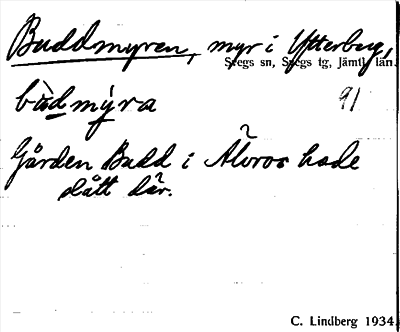 Buddmyren, myr i Ytterberg,
Svegs sn, Svegs tg, Jämtl. län.
bùdmýra 91
Gården Budd i Älvros hade
slått där.
C. Lindberg 1934